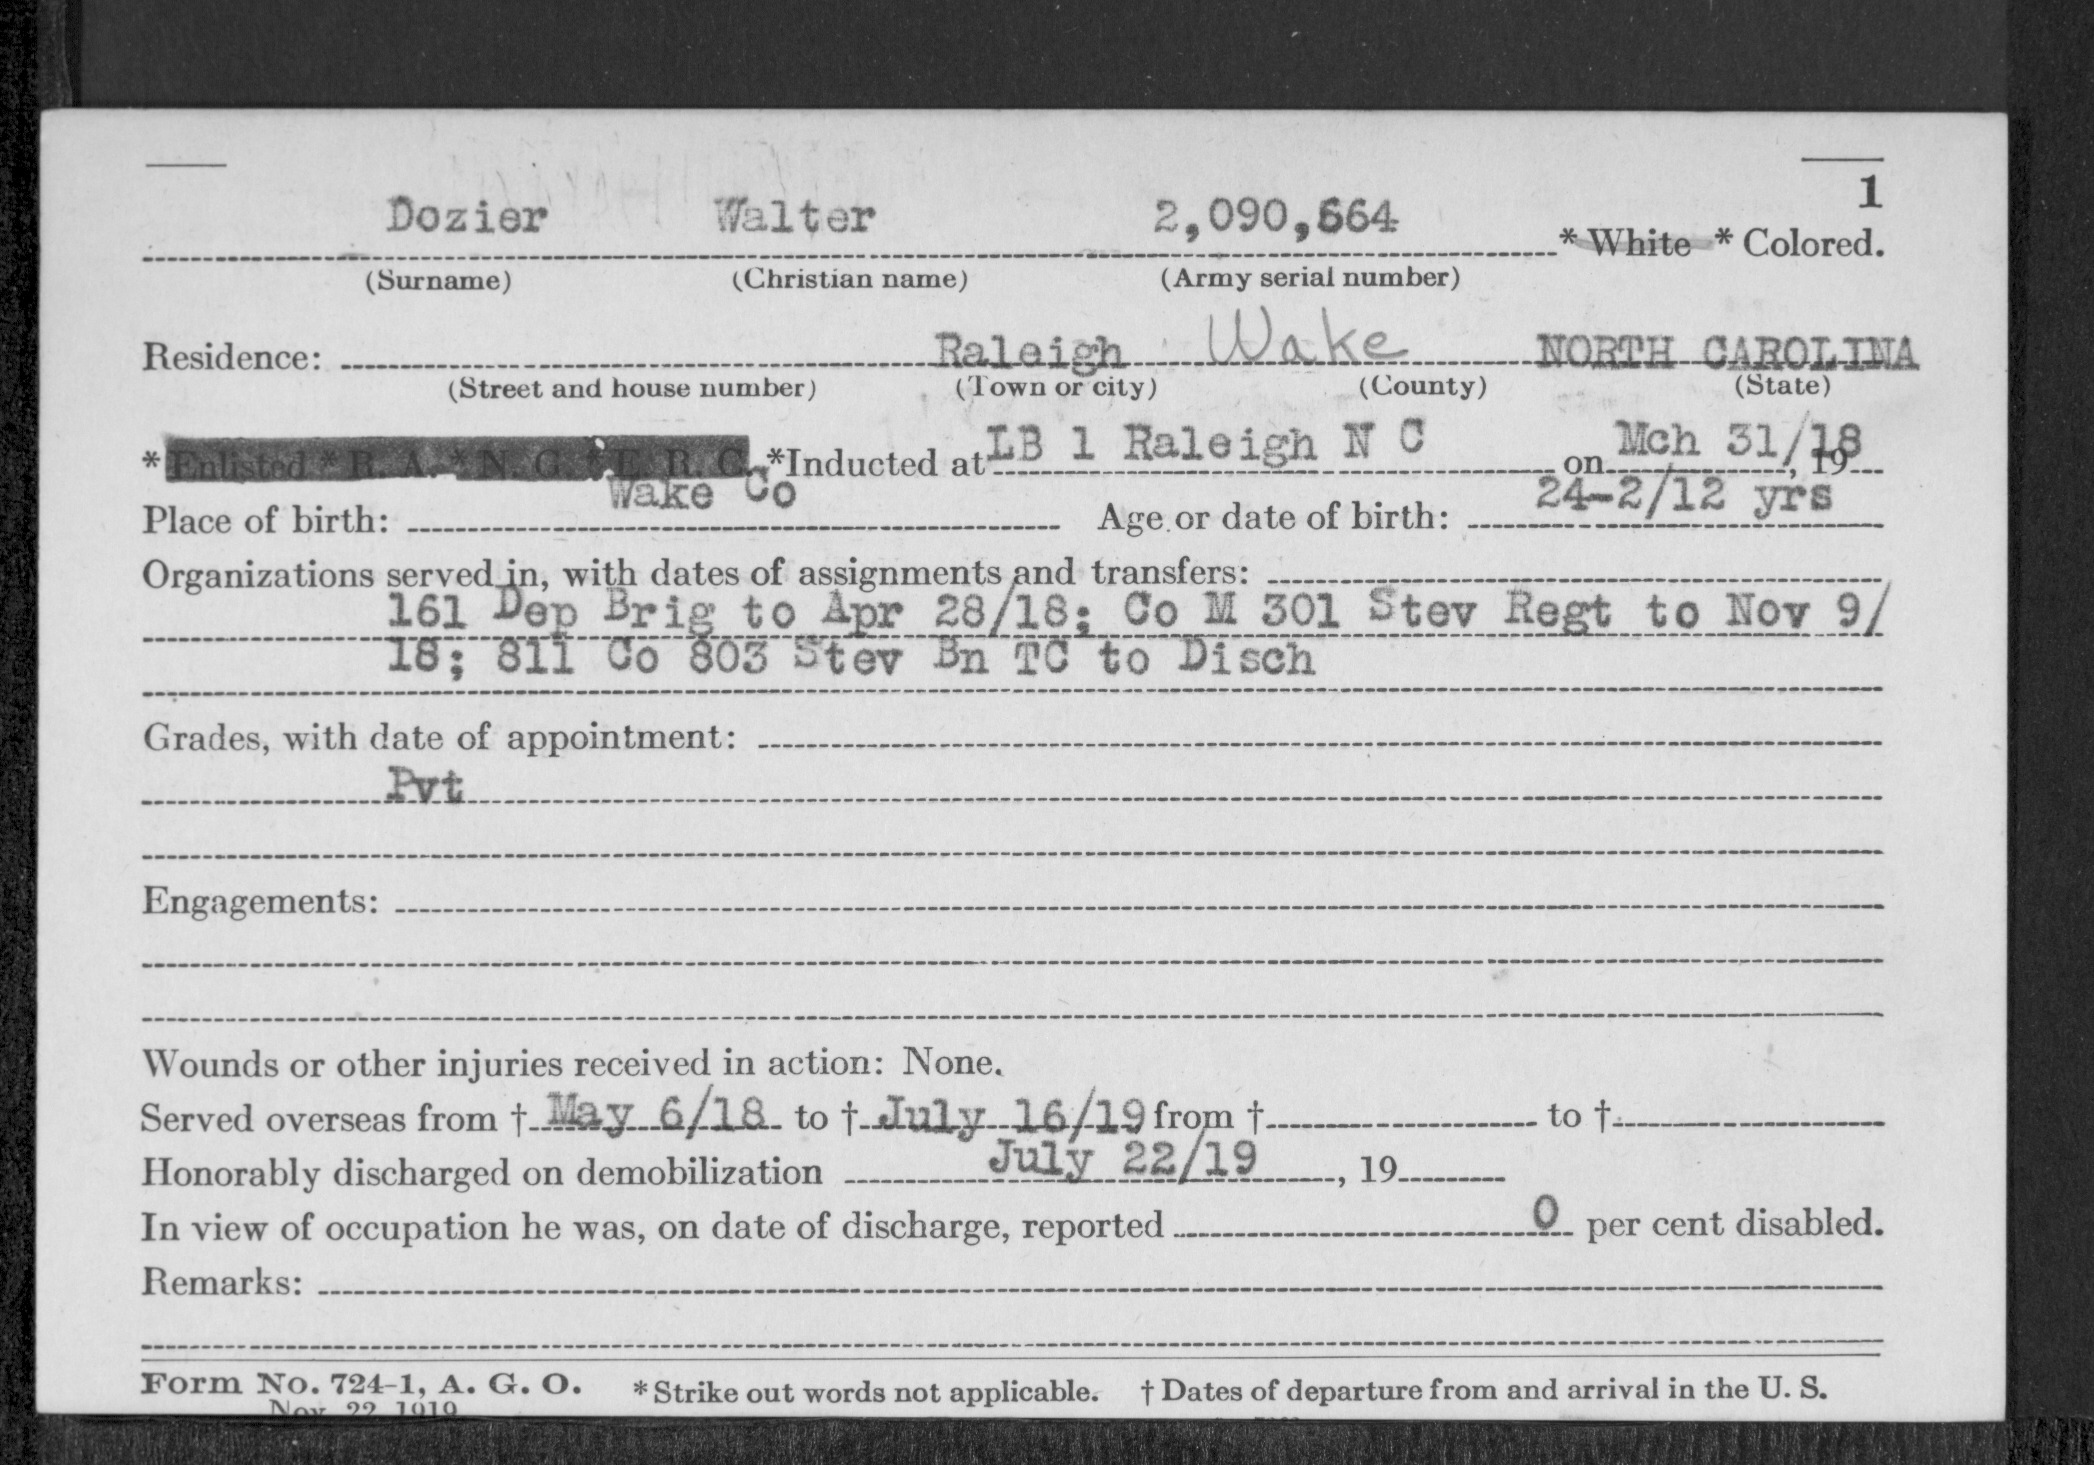 1
Dozier Walter 2,090,664 * White * Colored.
(Surname) (Christian name) (Army serial number)
Residence: Raleigh Wake NORTH CAROLINA
(Street and house number) (Town or city) (County) (State)
* Enlisted * R. A. * N. G. * E. R. C. *Inducted at LB 1 Raleigh N C on Mch 31/18, 19
Place of birth: Wake Co Age or date of birth: 24-2/12 yrs
Organizations served in, with dates of assignments and transfers:
161 Dep Brig to Apr 28/18; Co M 301 Stev Regt to Nov 9/
18; 811 Co 803 Stev Bn TC to Disch
Grades, with date of appointment:
Pvt
Engagements:
Wounds or other injuries received in action: None.
Served overseas from † May 6/18 to † July 16/19 from † to †
Honorably discharged on demobilization July 22/19, 19
In view of occupation he was, on date of discharge, reported 0 per cent disabled.
Remarks:
Form No. 724-1, A. G. O. * Strike out words not applicable. † Dates of departure from and arrival in the U. S.
Nov. 22, 1919